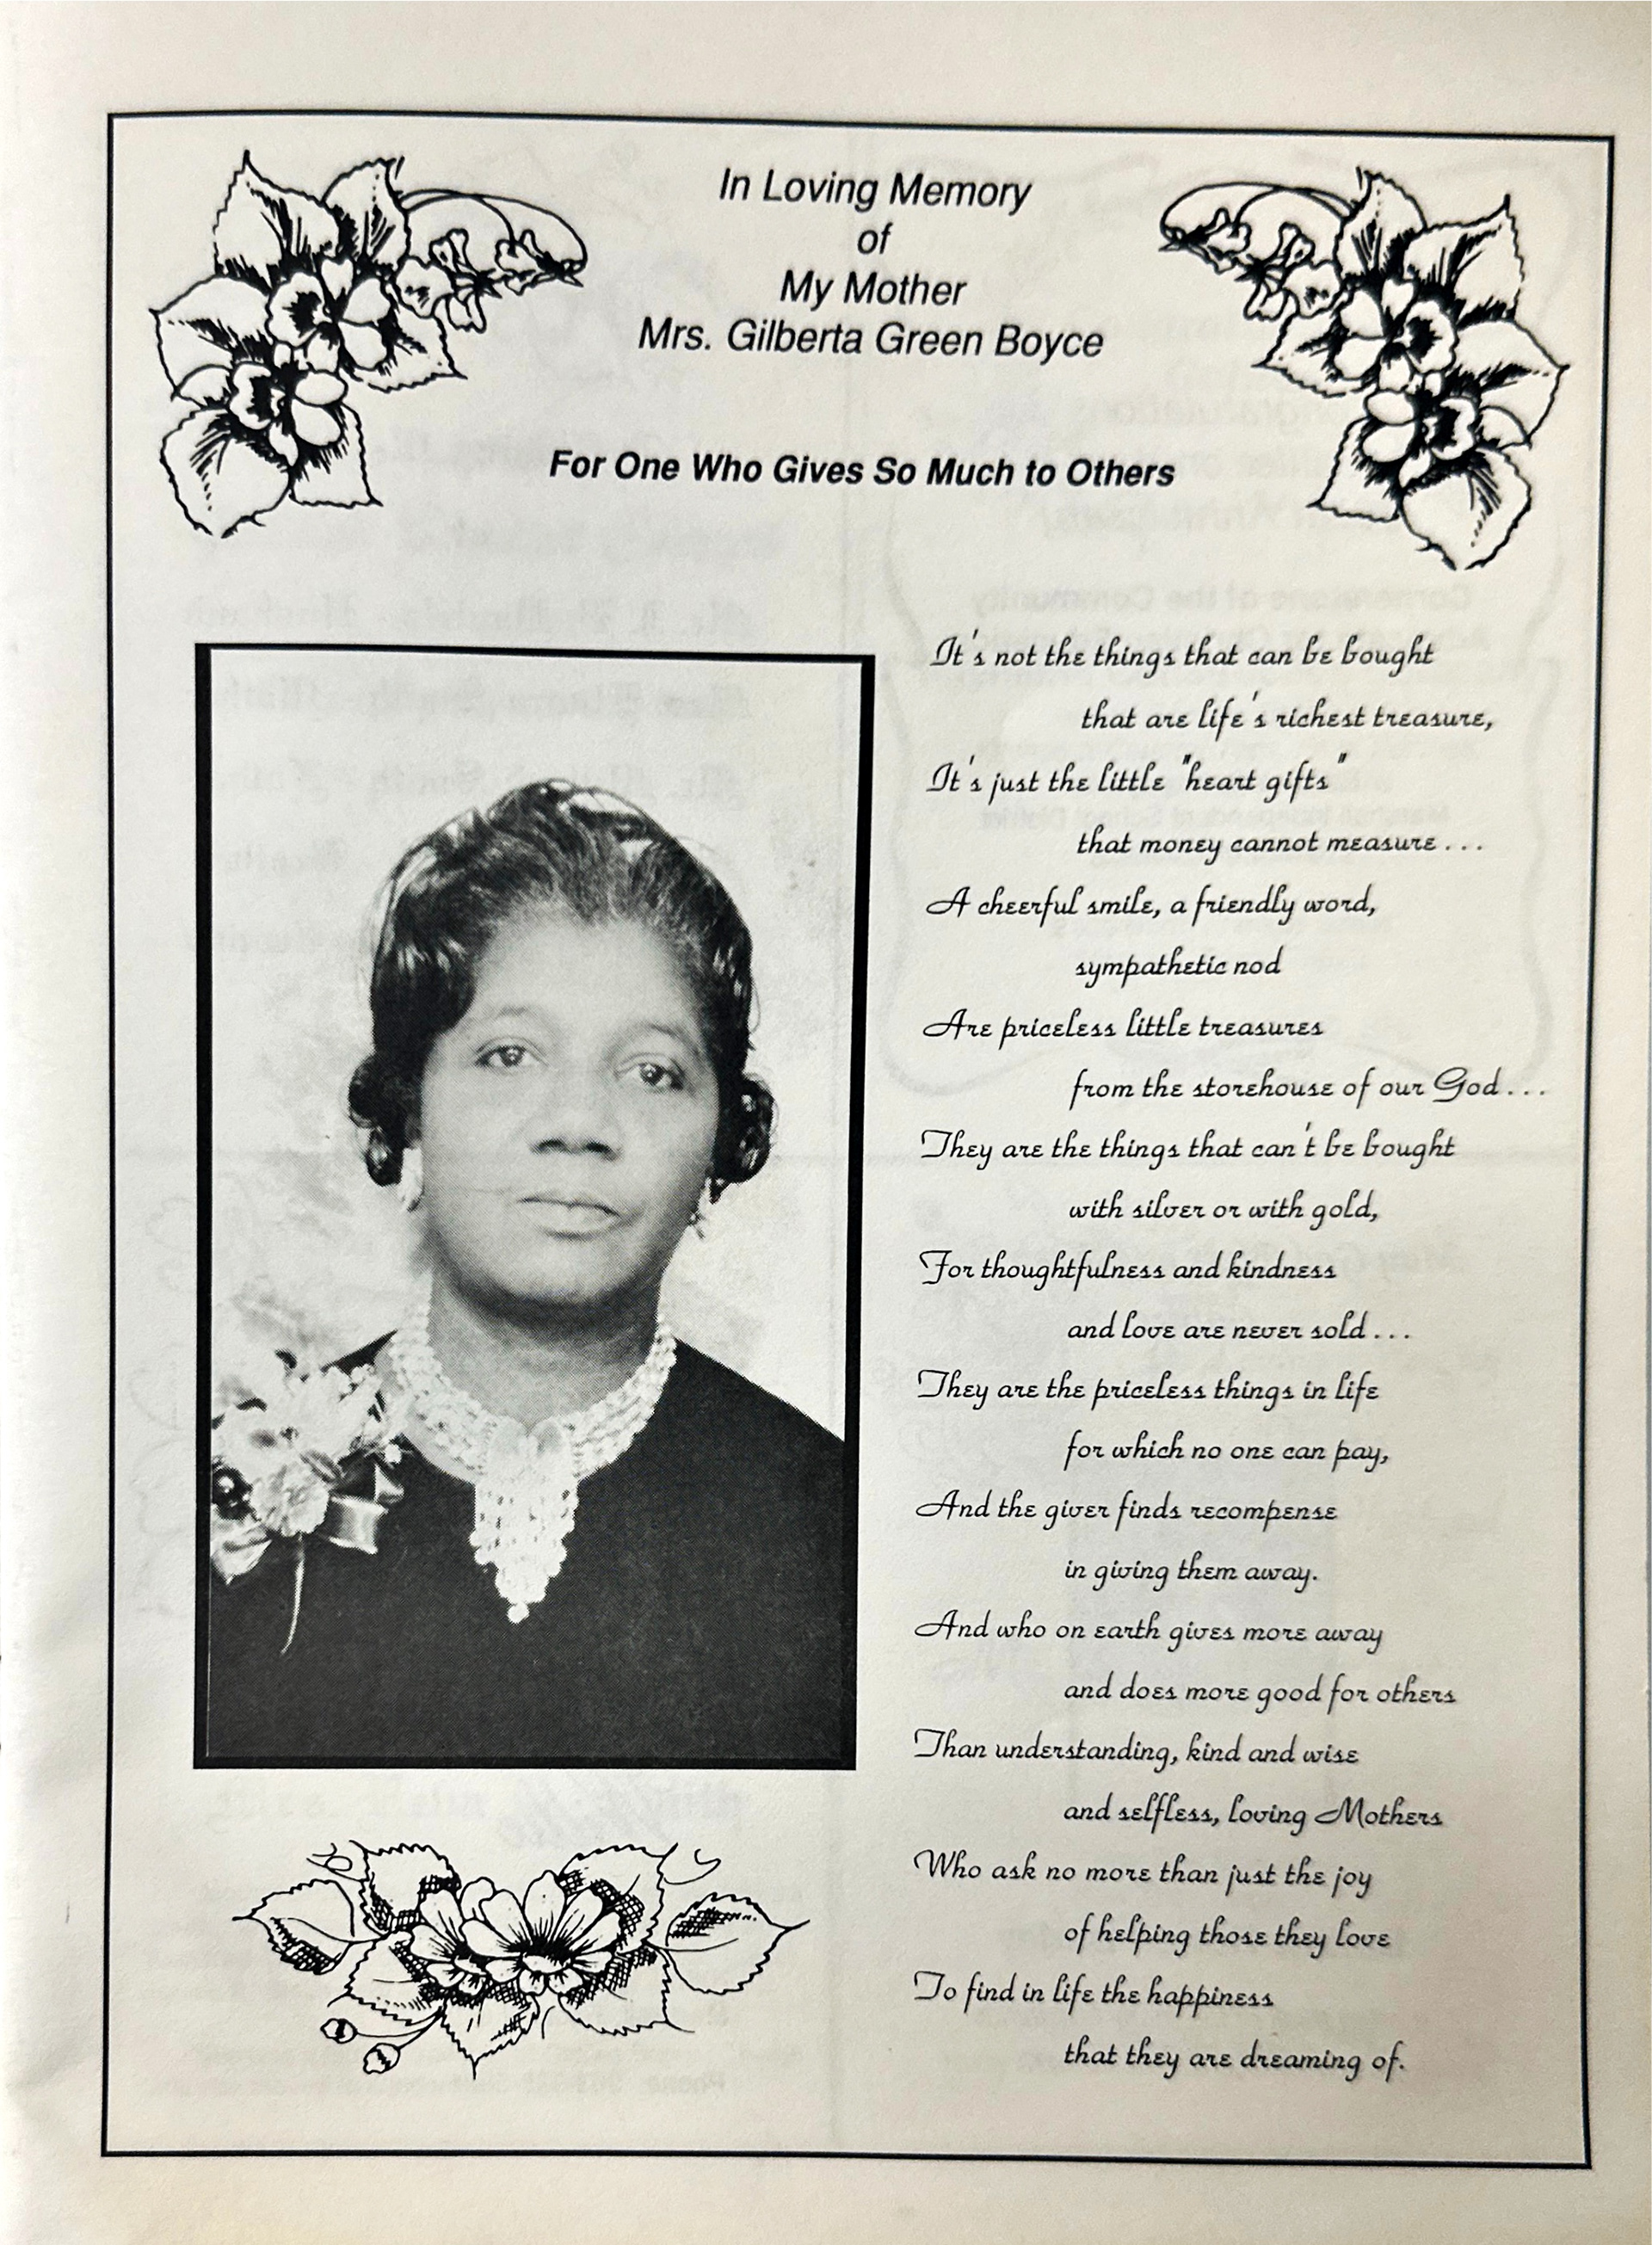 In Loving Memory
of
My Mother
Mrs. Gilberta Green Boyce
For One Who Gives So Much to Others
It's not the things that can be bought
that are life's richest treasure,
It's just the little "heart gifts"
that money cannot measure . . .
A cheerful smile, a friendly word,
sympathetic nod
Are priceless little treasures
from the storehouse of our God . . .
They are the things that can't be bought
with silver or with gold,
For thoughtfulness and kindness
and love are never sold . . .
They are the priceless things in life
for which no one can pay,
And the giver finds recompense
in giving them away.
And who on earth gives more away
and does more good for others
Than understanding, kind and wise
and selfless, loving Mothers
Who ask no more than just the joy
of helping those they love
To find in life the happiness
that they are dreaming of.